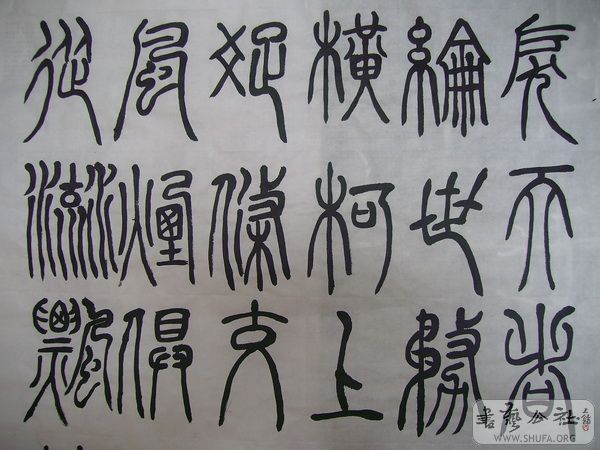 戾天者
綸世務
橫柯上
疏條交
風煙俱
從流飄
書藝公社
WWW.SHUFA.ORG